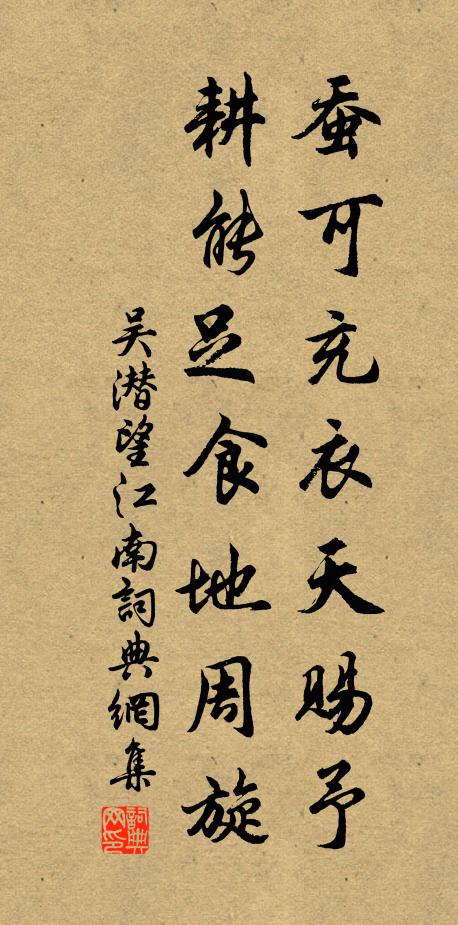 蚕可充衣天赐予
耕能足食地周旋
吴潜望江南詞典網集
詞典网印